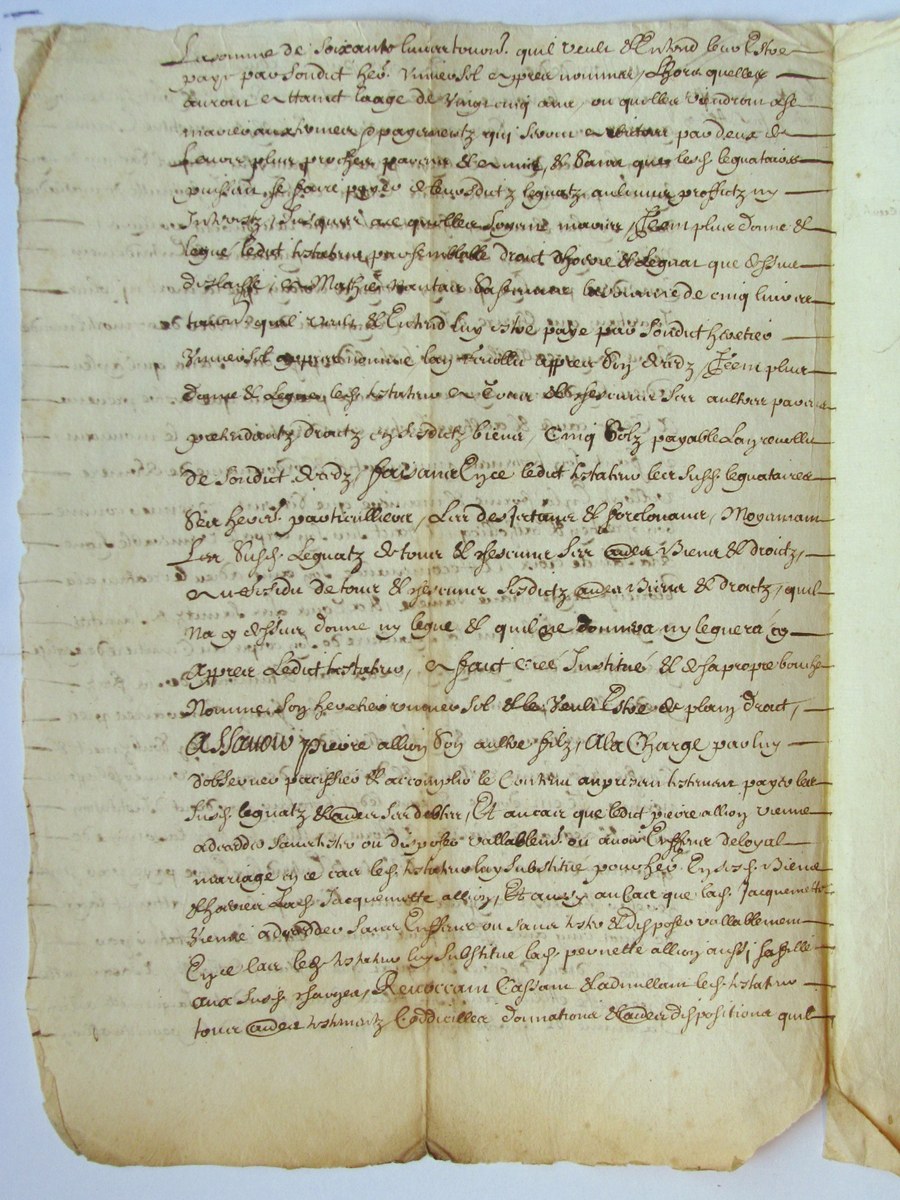 La somme de soixante livres tourn. quil veult & Entend leur Estre
paye par sondict her. universel apprez nommé, Lhors quelles
auront attainct laage de vingt cinq ans, ou quelles viendront a se
marier payementz qui seront par deux de
leurs plus proches parens & amis, & sans que lesd. legnataires
puissent se faire payer de leursdictz legnatz ny proffictz ny
Intherestz, Jusques ace quelles soyent mariees, Item plus donne &
legue ledict testateur par semblable droict dhoirie & legnat que dessus
de cinq livres
tournois quil veult & Entend luy estre paye par sondict heretier
Universel nommé lan revollu apprez son deedz, Item plus
donne & legue led. testateur a tous & chescungs ses aultres parens
prethendantz droictz en sesdictz biens, Cinq solz payable lan revollu
de sondict deedz, faisant Enjce ledict testateur les susd. legnataires
ses herit. particulliers, Les dejettant & forclouant, Moyennant
Les susd. Legnatz de tous & chescungs ses aultres Biens & droictz,
Au residu de tous & chescungs sesdictz aultres Biens & droictz, quil
Na cy dessus donne ny legue & quil ne donnera ny leguera cy
appres Ledict testateur, a faict creé Institué & de sa propre bouche
Nommé son heretier universel & le veult Estre de plain droict,
Assavoir pierre allion son aultre filz, Ala Charge par luy
dobserver pacissier & accomplir le Contenu au present testament payer les
susd. legnatz & aultres ses debtes, Et au cas que ledict pierre allion vienne
a deceder sans tester ou disposer vallablement ou avoir Enffans de loyal
mariage en ce cas led. testateur luy substitue pour her. En sesd. Biens
& hoirie Lad. Jacquemette allion, Et aussy au Cas que lad. Jacquemette
Vienne a deceder sans Enffans ou sans tester & disposer vallablement
Enjce cas led. testateur luy substitue lad. pernette allion aussi sa fille
aux susd. charges, Revoccant Cassant & adnullant led. testateur
tous aultres testamentz Coddicilles donnations & aultres dispositions quil